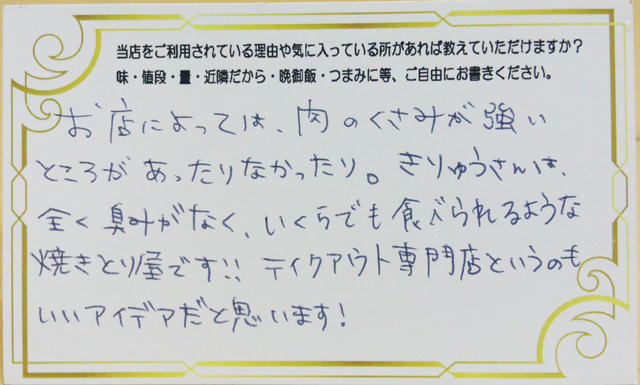 当店をご利用されている理由や気に入っている所があれば教えていただけますか？
味・値段・量・近隣だから・晩御飯・つまみに等、ご自由にお書きください。
お店によっては、肉のくさみが強い
ところがあったりなかったり。きりゅうさんは、
全く臭みがなく、いくらでも食べられるような
焼きとり屋です!! テイクアウト専門店というのも
いいアイデアだと思います!